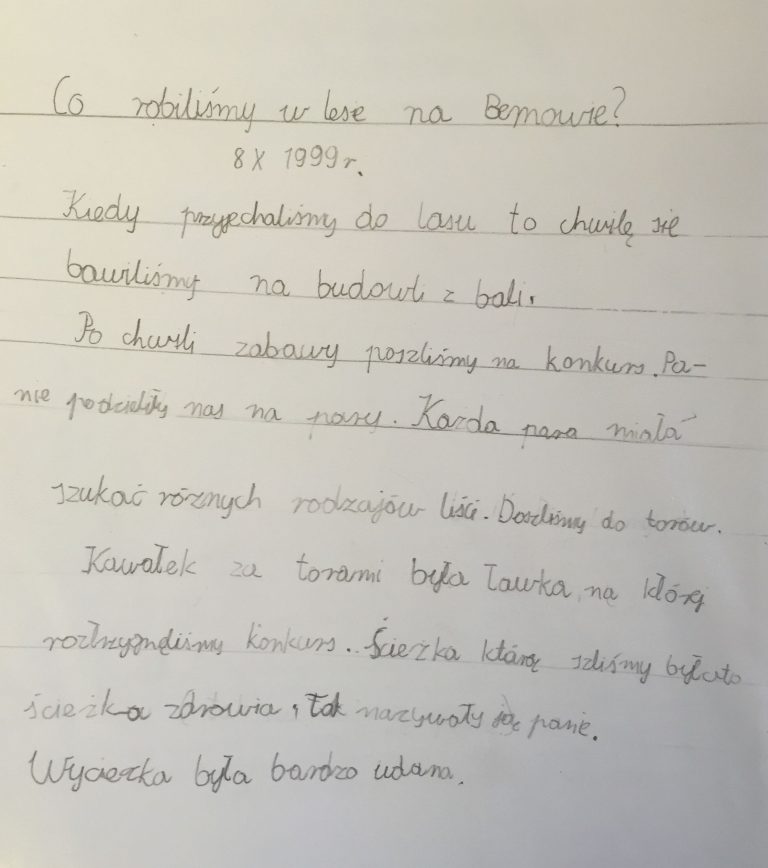 Co robiliśmy w lesie na Bemowie?
8 X 1999 r.
Kiedy przyjechaliśmy do lasu to chwilę się
bawiliśmy na budowli z bali.
Po chwili zabawy poszliśmy na konkurs. Pa-
nie podzieliły nas na pary. Każda para miała
szukać różnych rodzajów liści. Doszliśmy do torów.
Kawałek za torami była ławka, na której
konkurs. Ścieżka którą szliśmy była to
ścieżka zdrowia, tak nazywały ją panie.
Wycieczka była bardzo udana.